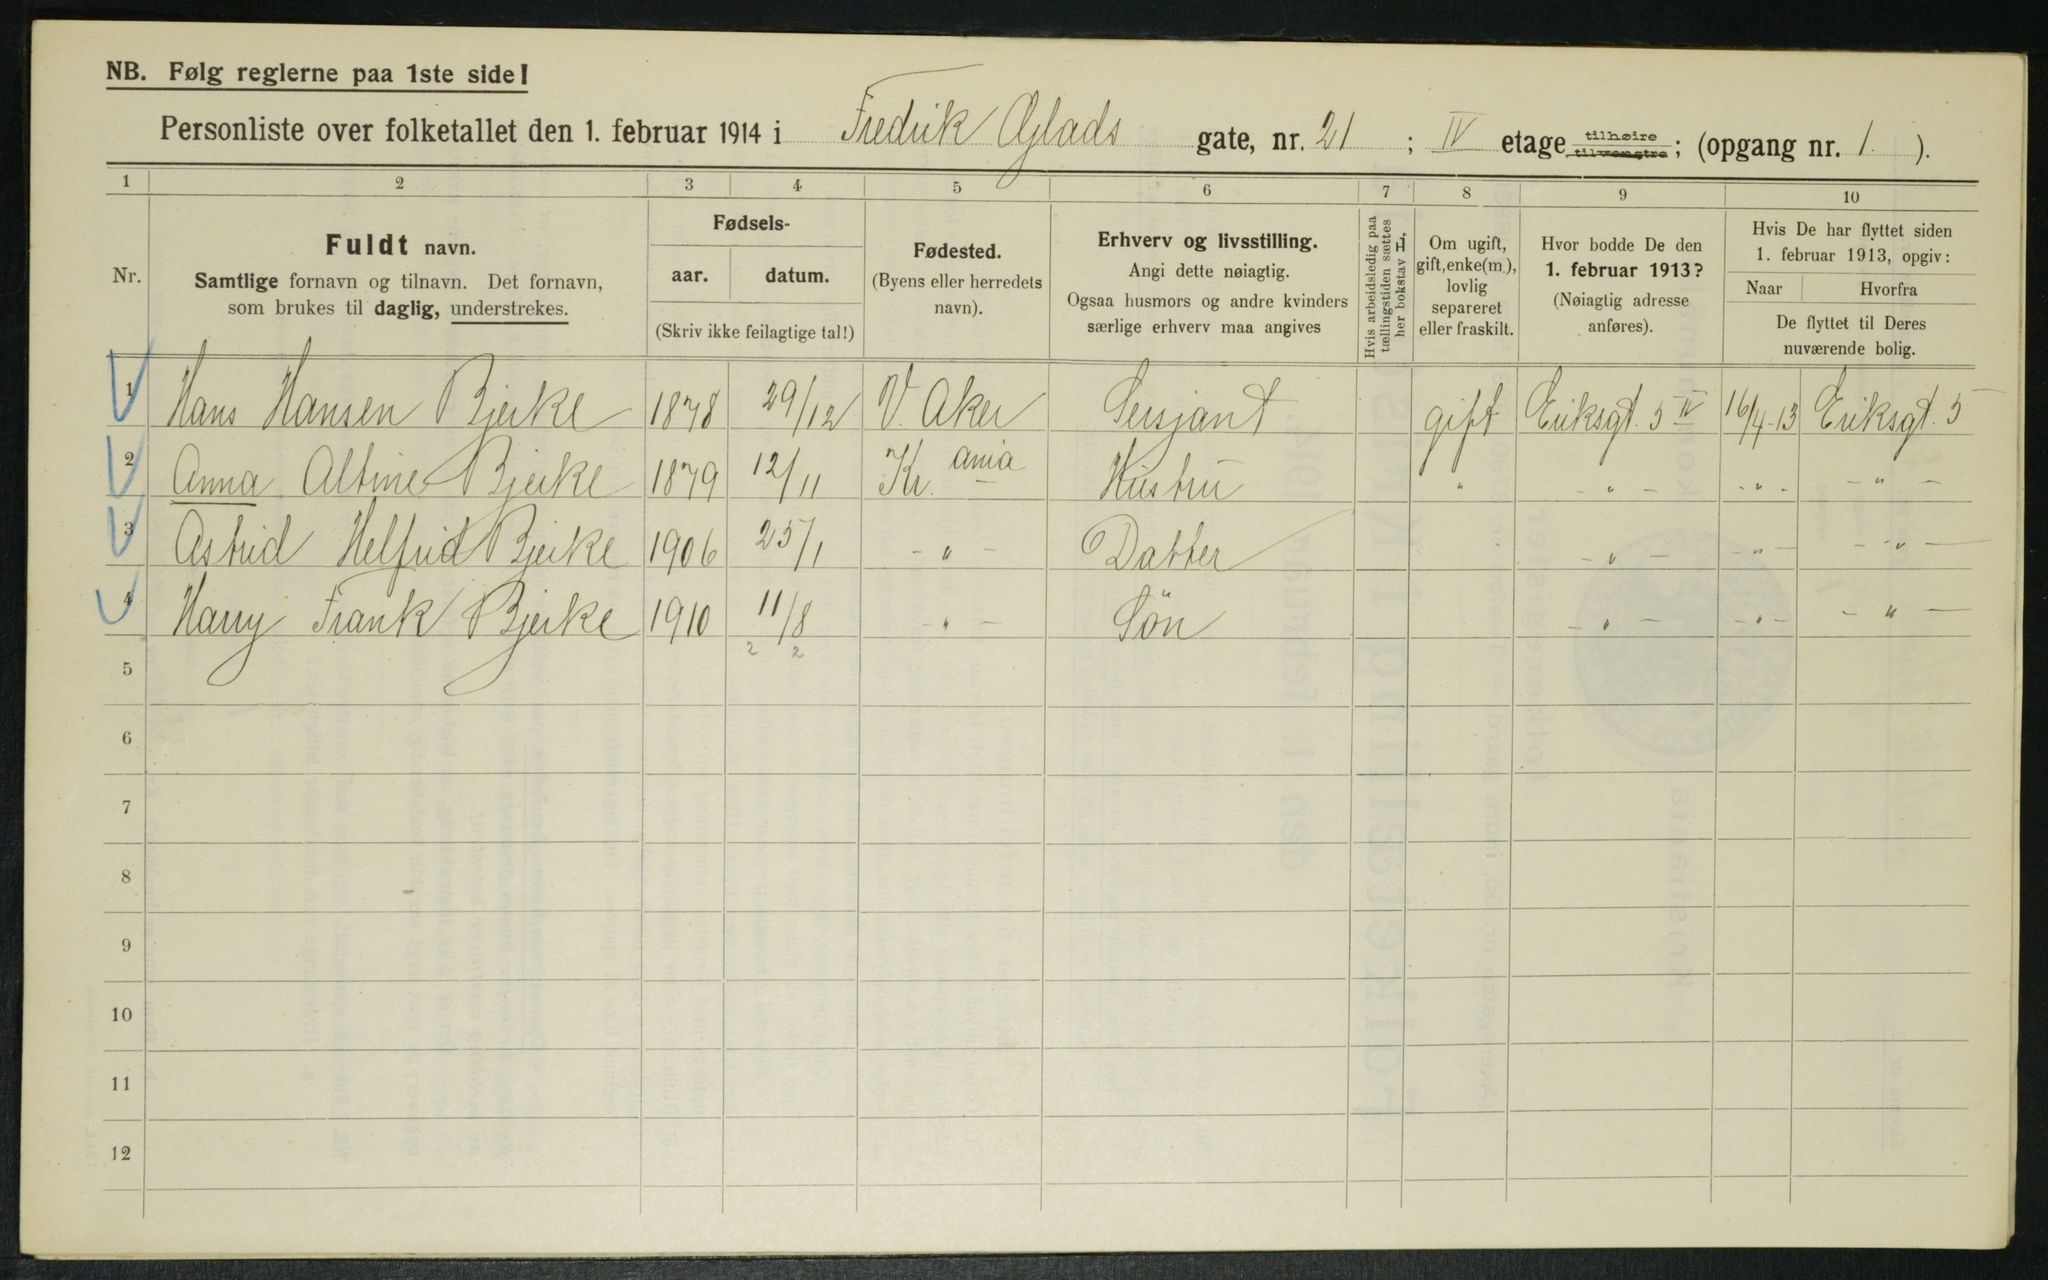 NB. Følg reglerne paa 1ste side!
Personliste over folketallet den 1. februar 1914 i Fredrik Glads gate, nr. 21 ; IV etage tilhøire tilvenstre; (opgang nr. 1. ).
1 2 3 4 5 6 7 8 9 10
Nr.
Fuldt navn.
Samtlige fornavn og tilnavn. Det fornavn,
som brukes til daglig, understrekes.
Fødsels-
aar. datum.
(Skriv ikke feilagtige tal!)
Fødested.
(Byens eller herredets
navn).
Erhverv og livsstilling.
Angi dette nøiagtig.
Ogsaa husmors og andre kvinders
særlige erhverv maa angives
Hvis arbeidsledig paa
tællingstiden sættes
her bokstav L.
Om ugift,
gift, enke(m.),
lovlig
separeret
eller fraskilt.
Hvor bodde De den
1. februar 1913?
(Nøiagtig adresse
anføres).
Hvis De har flyttet siden
1. februar 1913, opgiv:
Naar Hvorfra
De flyttet til Deres
nuværende bolig.
1 Hans Hansen Bjerke 1878 29/12 V. Aker Sersjant gift Eriksgt. 5 IV 16/4-13 Eriksgt. 5
2 Anna Altine Bjerke 1879 12/11 Kr. ania Hustru " - " - - " - - " -
3 Astrid Helfrid Bjerke 1906 25/1 - " - Datter - " - - " - - " -
4 Harry Frank Bjerke 1910 11/8 - " - Sön - " - - " - - " -
2 2
5
6
7
8
9
10
11
12